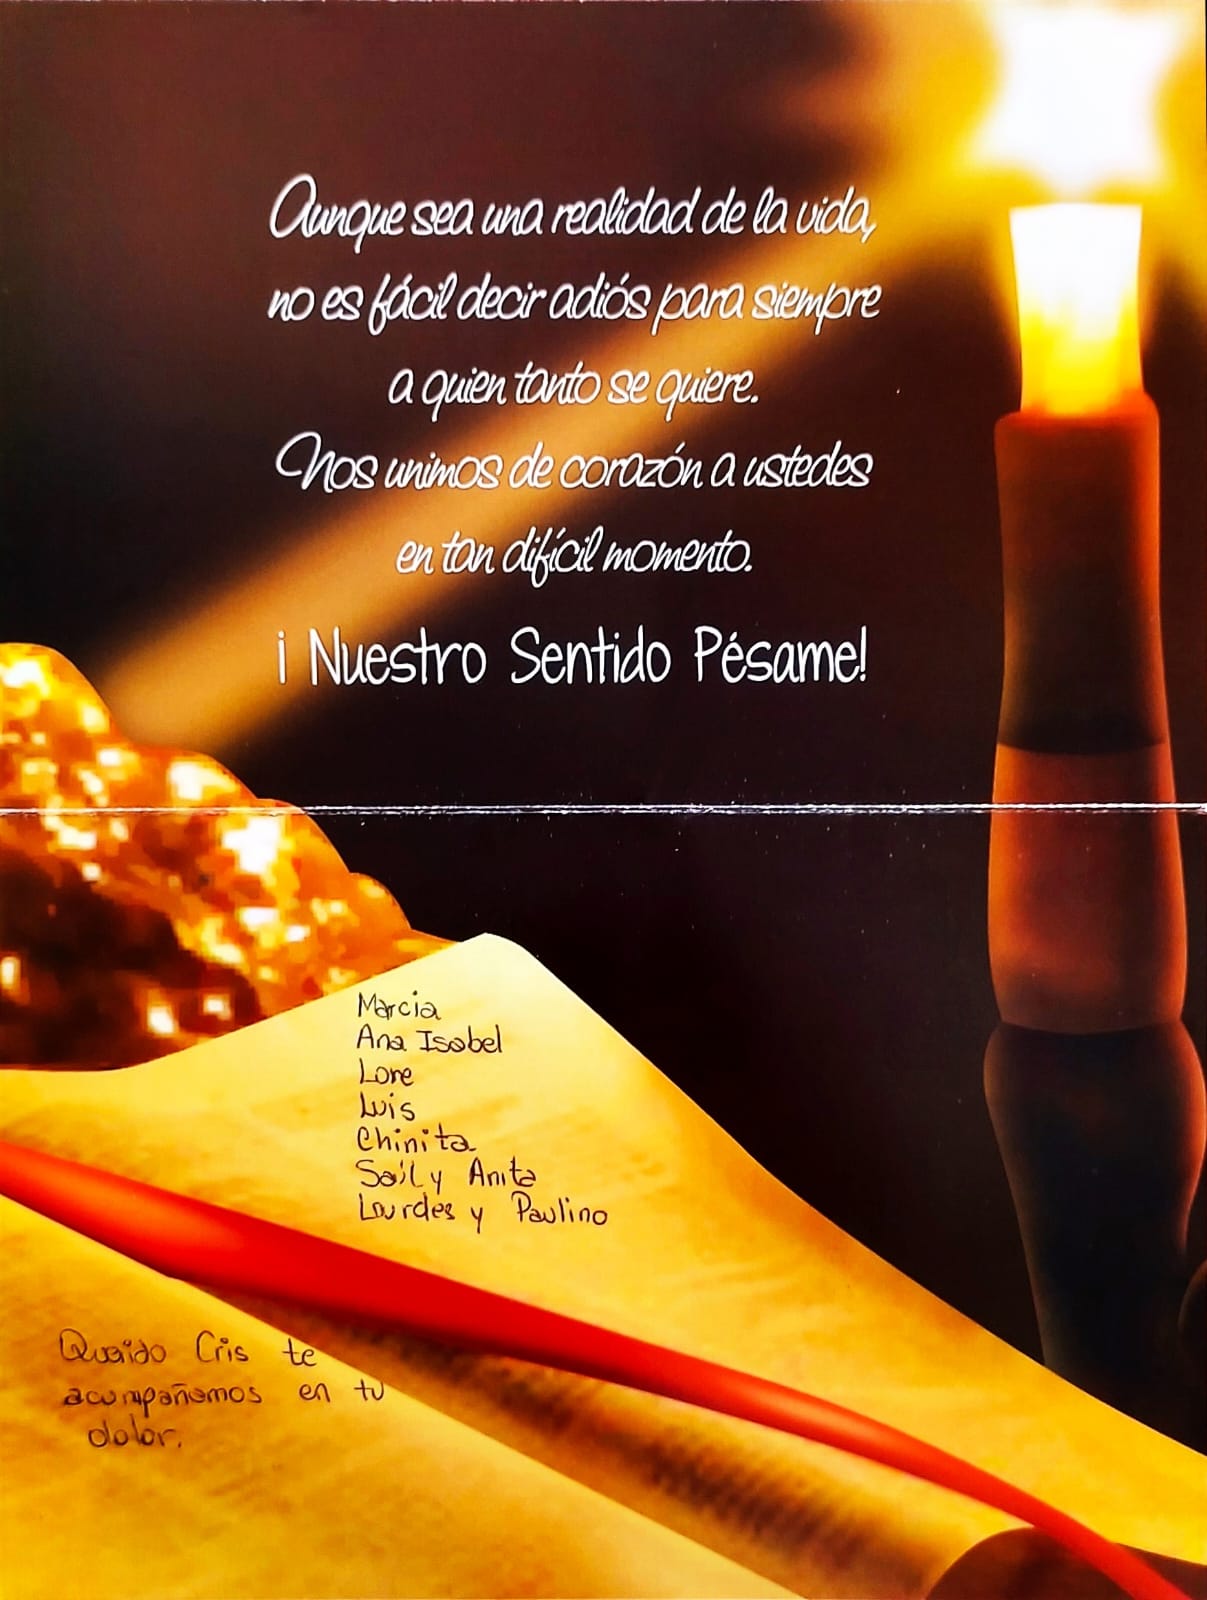 Aunque sea una realidad de la vida,
no es fácil decir adiós para siempre
a quien tanto se quiere.
Nos unimos de corazón a ustedes
en tan difícil momento.
¡ Nuestro Sentido Pésame!
Marcia
Ana Isabel
Lore
Luis
Chinita
y Anita
Lourdes y Paulino
Querido Cris te
acompañamos en tu
dolor.